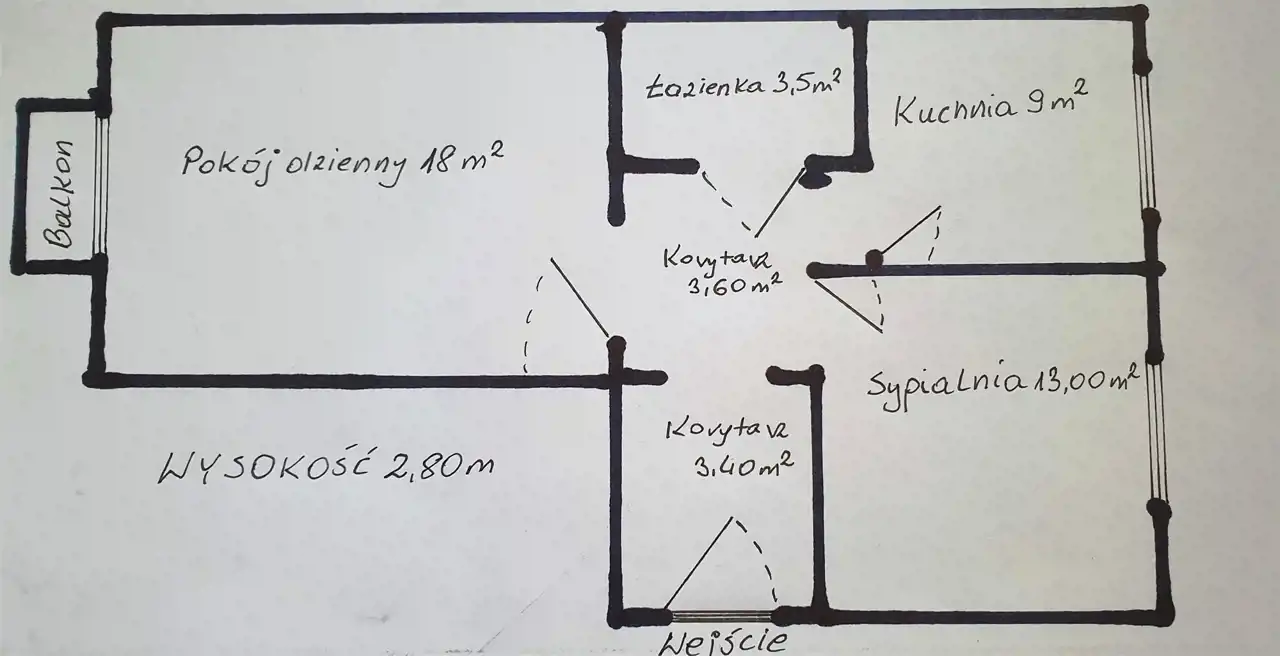 Łazienka 3,5m²
Kuchnia 9m²
Pokój dzienny 18m²
Balkon
Korytarz
3,60m²
Sypialnia 13,00m²
Korytarz
3,40m²
WYSOKOŚĆ 2,80m
Wejście